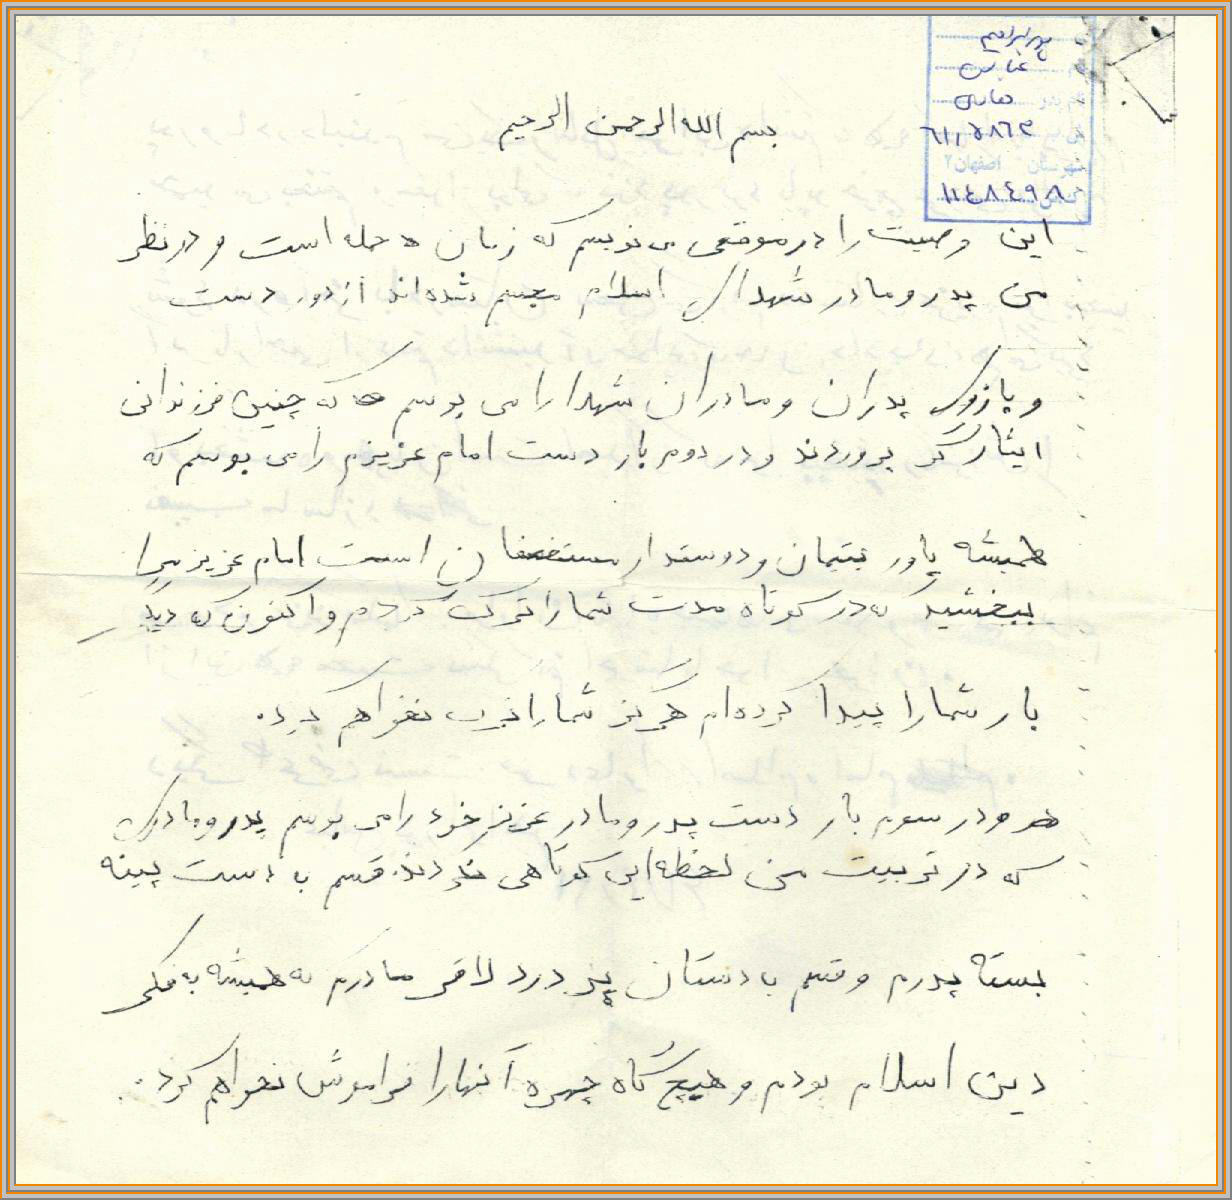 پورابراهیم
عباس
نام پدر عباس
۶۱٫۵۸۶۳
شهرستان اصفهان ۲
۱۱۴۸۴۹۸
بسم الله الرحمن الرحیم
این وصیت را در موقعی می نویسم که زمان حمله است و در نظر
من پدر و مادر شهدای اسلام مجسم شده اند از دور دست
و بازوی پدران و مادران شهدا را می بوسم که چنین فرزندانی
ایثارگر پروردند و در دوم بار دست امام عزیزم را می بوسم که
همیشه یاور یتیمان و دوستدار مستضعفان است امام عزیز مرا
ببخشید که در کوتاه مدت شما را ترک کردم و اکنون که دیگر
بار شما را پیدا کرده ام هرگز شما را ترک نخواهم کرد.
و در سوم بار دست پدر و مادر عزیز خود را می بوسم پدر و مادری
که در تربیت من لحظه ایی کوتاهی نکردند. قسم به دست پینه
بسته پدرم و قسم به دستان پر درد لاغر مادرم که همیشه به فکر
دین اسلام بودم و هیچ گاه چهره آنها را فراموش نخواهم کرد.